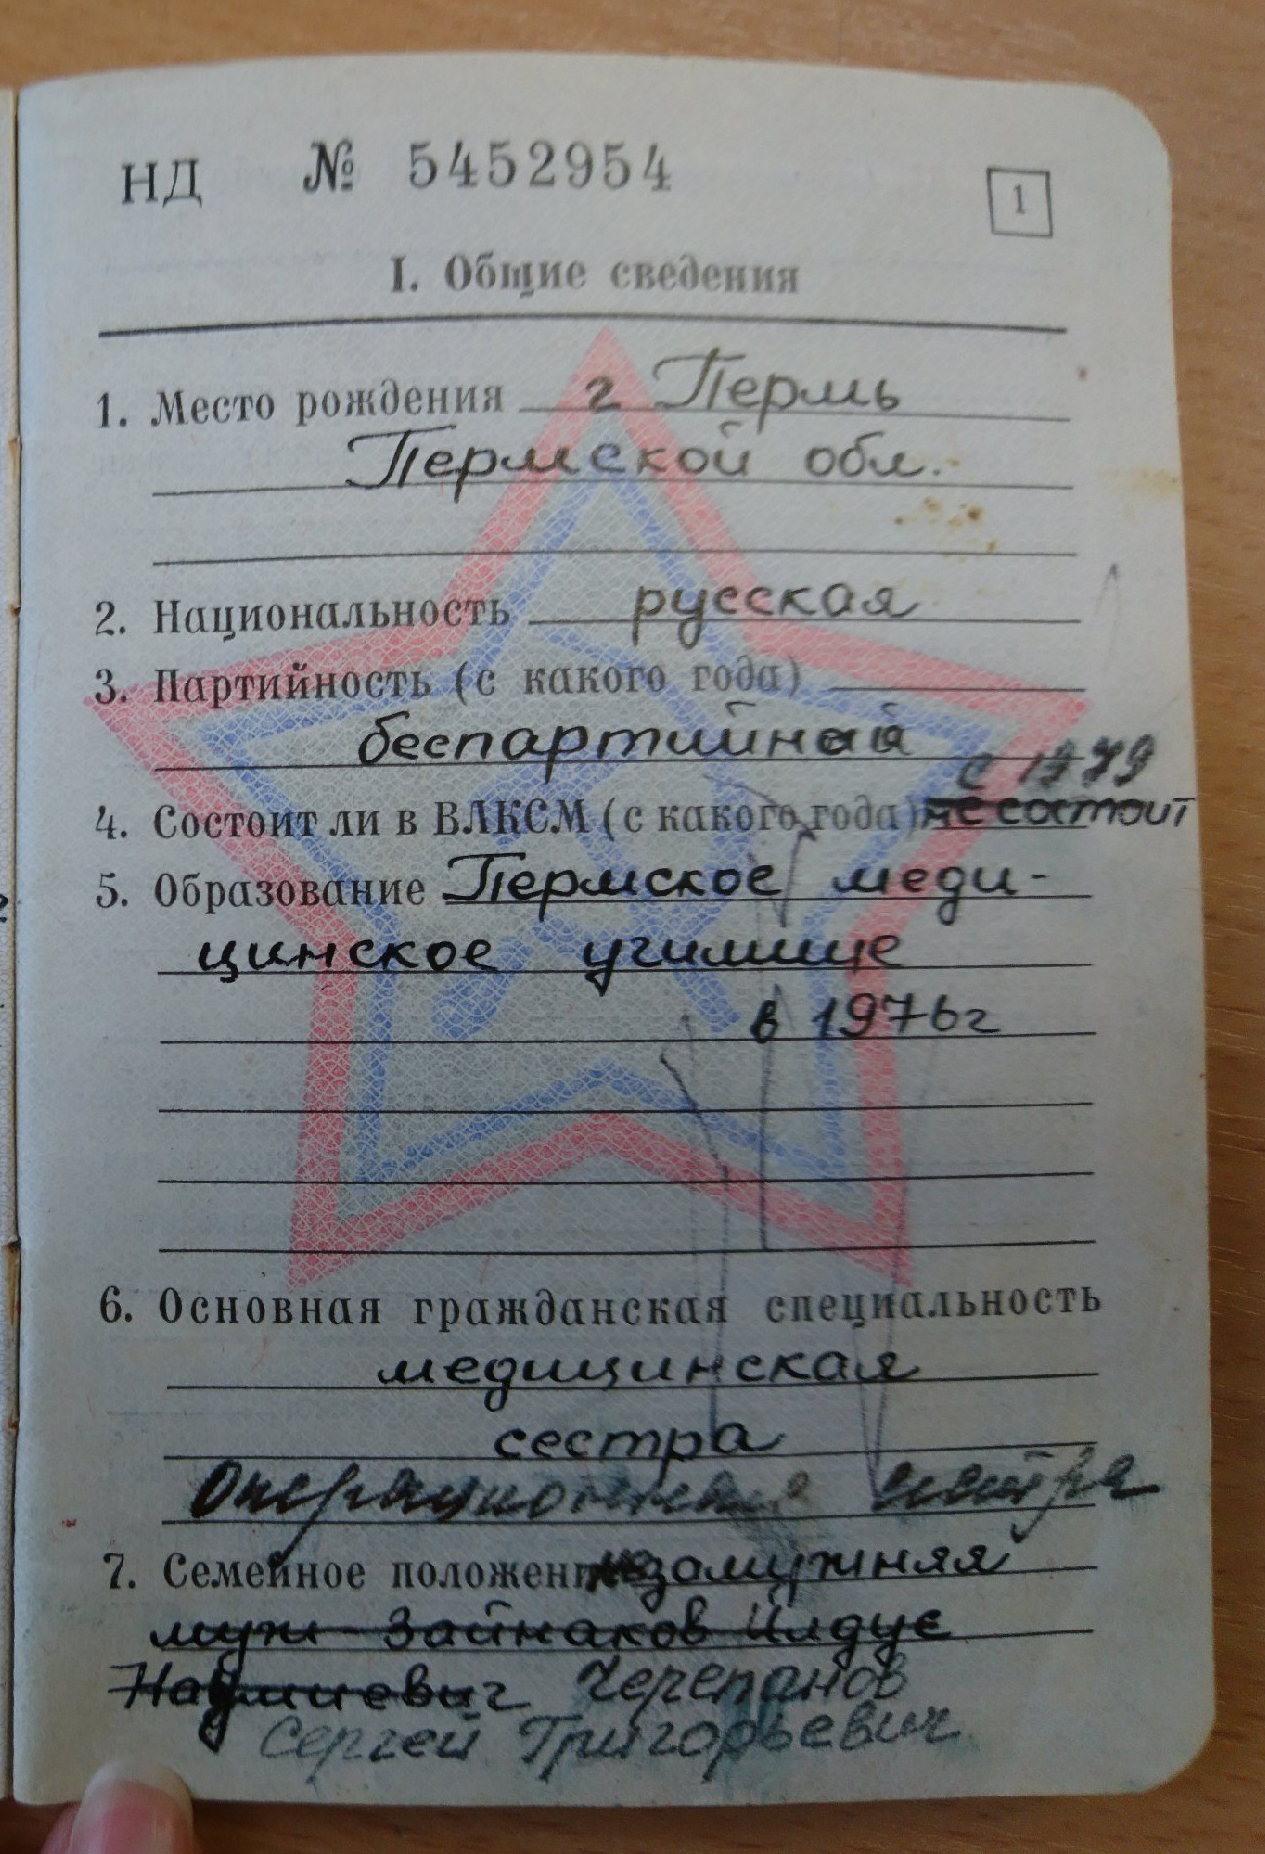 НД № 5452954
1
I. Общие сведения
1. Место рождения г Пермь
Пермской обл.
2. Национальность русская
3. Партийность (с какого года)
беспартийная
с 1979
4. Состоит ли в ВЛКСМ (с какого года) не состоит
5. Образование Пермское меди-
цинское училище
в 1976г
6. Основная гражданская специальность
медицинская
сестра
Операционная сестра
7. Семейное положение замужняя
муж Зайнаков Илдус
Черепанов
Сергей Григорьевич